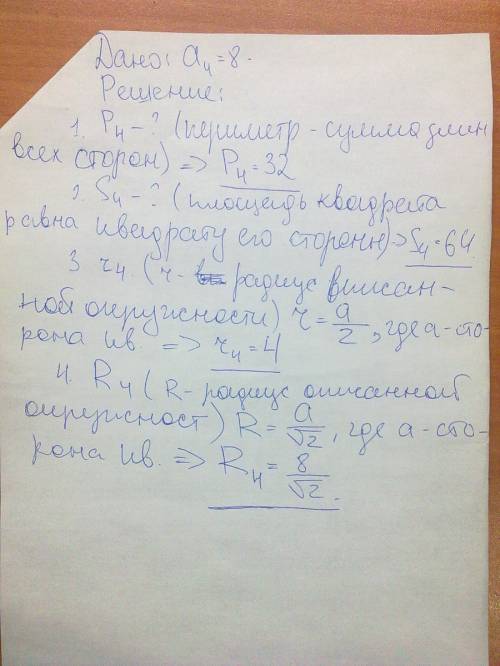 Дано: a₄ = 8.
Решение:
1. P₄ - ? (периметр - сумма длин
всех сторон) => P₄ = 32
2. S₄ - ? (площадь квадрата
равна квадрату его стороны) => S₄ = 64.
3 r₄. (r - радиус вписан-
ной окружности) r = a/2, где a - сто-
рона кв. => r₄ = 4
4. R₄ (R - радиус описанной
окружност) R = a/√2, где a - сто-
рона кв. => R₄ = 8/√2.